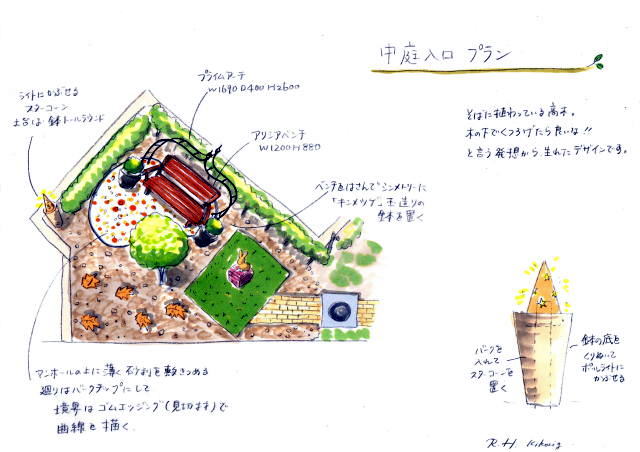 中庭入口 プラン
プライムアーチ
W1690 D400 H2600
ライトにかぶせる
スターコーン
土台は 鉢トールラウンド
アカシアベンチ
W1200 H880
そばに植わっている高木。
木の下でくつろげたら良いな!!
と言う発想から、生れたデザインです。
ベンチをはさんでシンメトリーに
「キンメツゲ」玉造りの
鉢を置く
マンホールの上に薄く砂利を敷きつめる
廻りはバークチップにして
境界はゴムエッジング(見切材)で
曲線を描く。
バークを
入れて
スターコーンを
置く
鉢の底を
くりぬいて
ポールライトに
かぶせる
R.H.